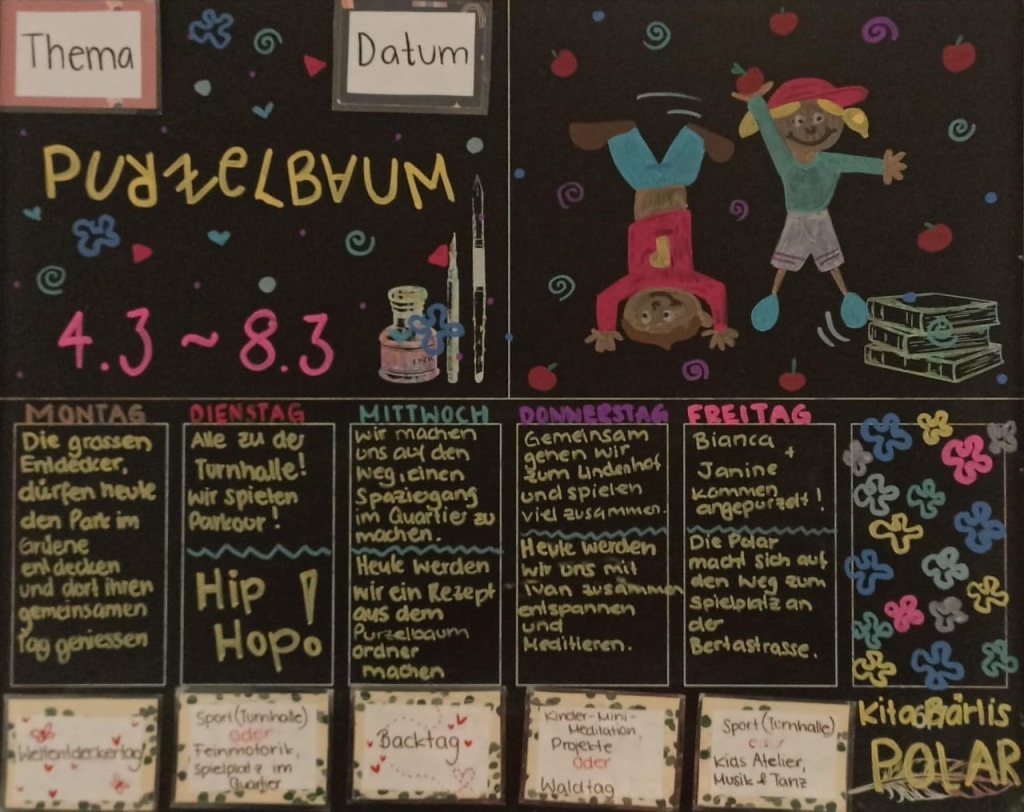 Thema
Datum
PURZELBAUM
4.3 ~ 8.3
INK
MONTAG
Die grossen
Entdecker,
dürfen heute
den Park im
Grüene
entdecken
und dort ihren
gemeinsamen
Tag geniessen
DIENSTAG
Alle zu der
Turnhalle!
Wir spielen
Parkour!
Hip
Hop!
MITTWOCH
Wir machen
uns auf den
Weg, einen
Spaziegang
im Quartier zu
machen.
Heute werden
wir ein Rezept
aus dem
Purzelbaum
ordner
machen
DONNERSTAG
Gemeinsam
gehen wir
zum Lindenhof
und spielen
viel zusammen.
Heute werden
wir uns mit
Ivan zusammen
entspannen
und
Meditieren.
FREITAG
Bianca
+
Janine
kommen
angepurzelt!
Die Polar
macht sich auf
den Weg zum
Spielplatz an
der
Bertastrasse.
Weltentdeckertag
Sport (Turnhalle)
oder
Feinmotorik,
Spielplatz im
Quartier
Backtag
Kinder-Mini-
Meditation,
Projekte
oder
Waldtag
Sport (Turnhalle)
oder
Kids Atelier,
Musik & Tanz
Kita Bärlis
POLAR